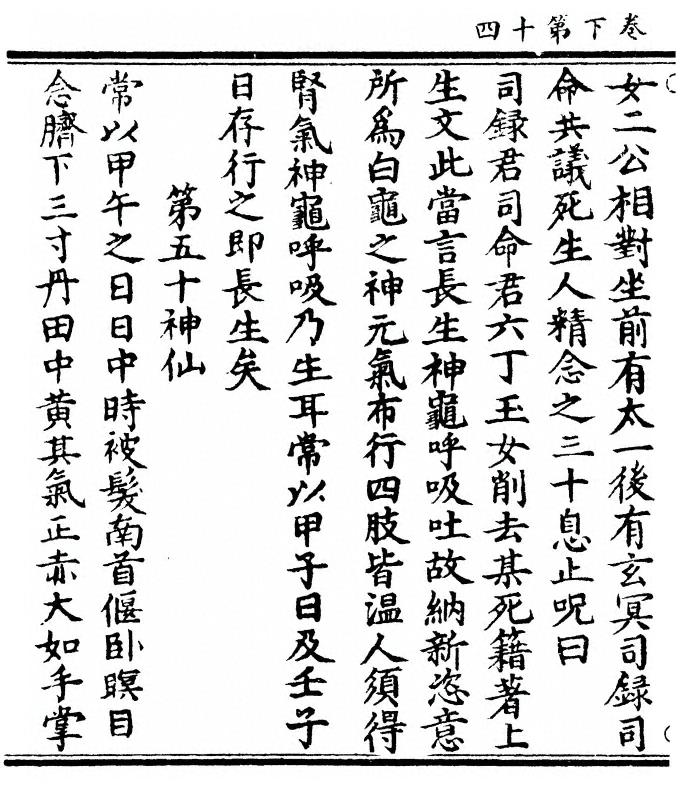 卷下第十四
女二公相對坐前有太一後有玄冥司録司
命共議死生人精念之三十息止呪曰
司録君司命君六丁玉女削去某死籍著上
生文此當言長生神龜呼吸吐故納新恣意
所爲白龜之神元氣布行四肢皆温人須得
腎氣神龜呼吸乃生耳常以甲子日及壬子
日存行之即長生矣
第五十神仙
常以甲午之日日中時被髮南首偃卧瞑目
念臍下三寸丹田中黄其氣正赤大如手掌